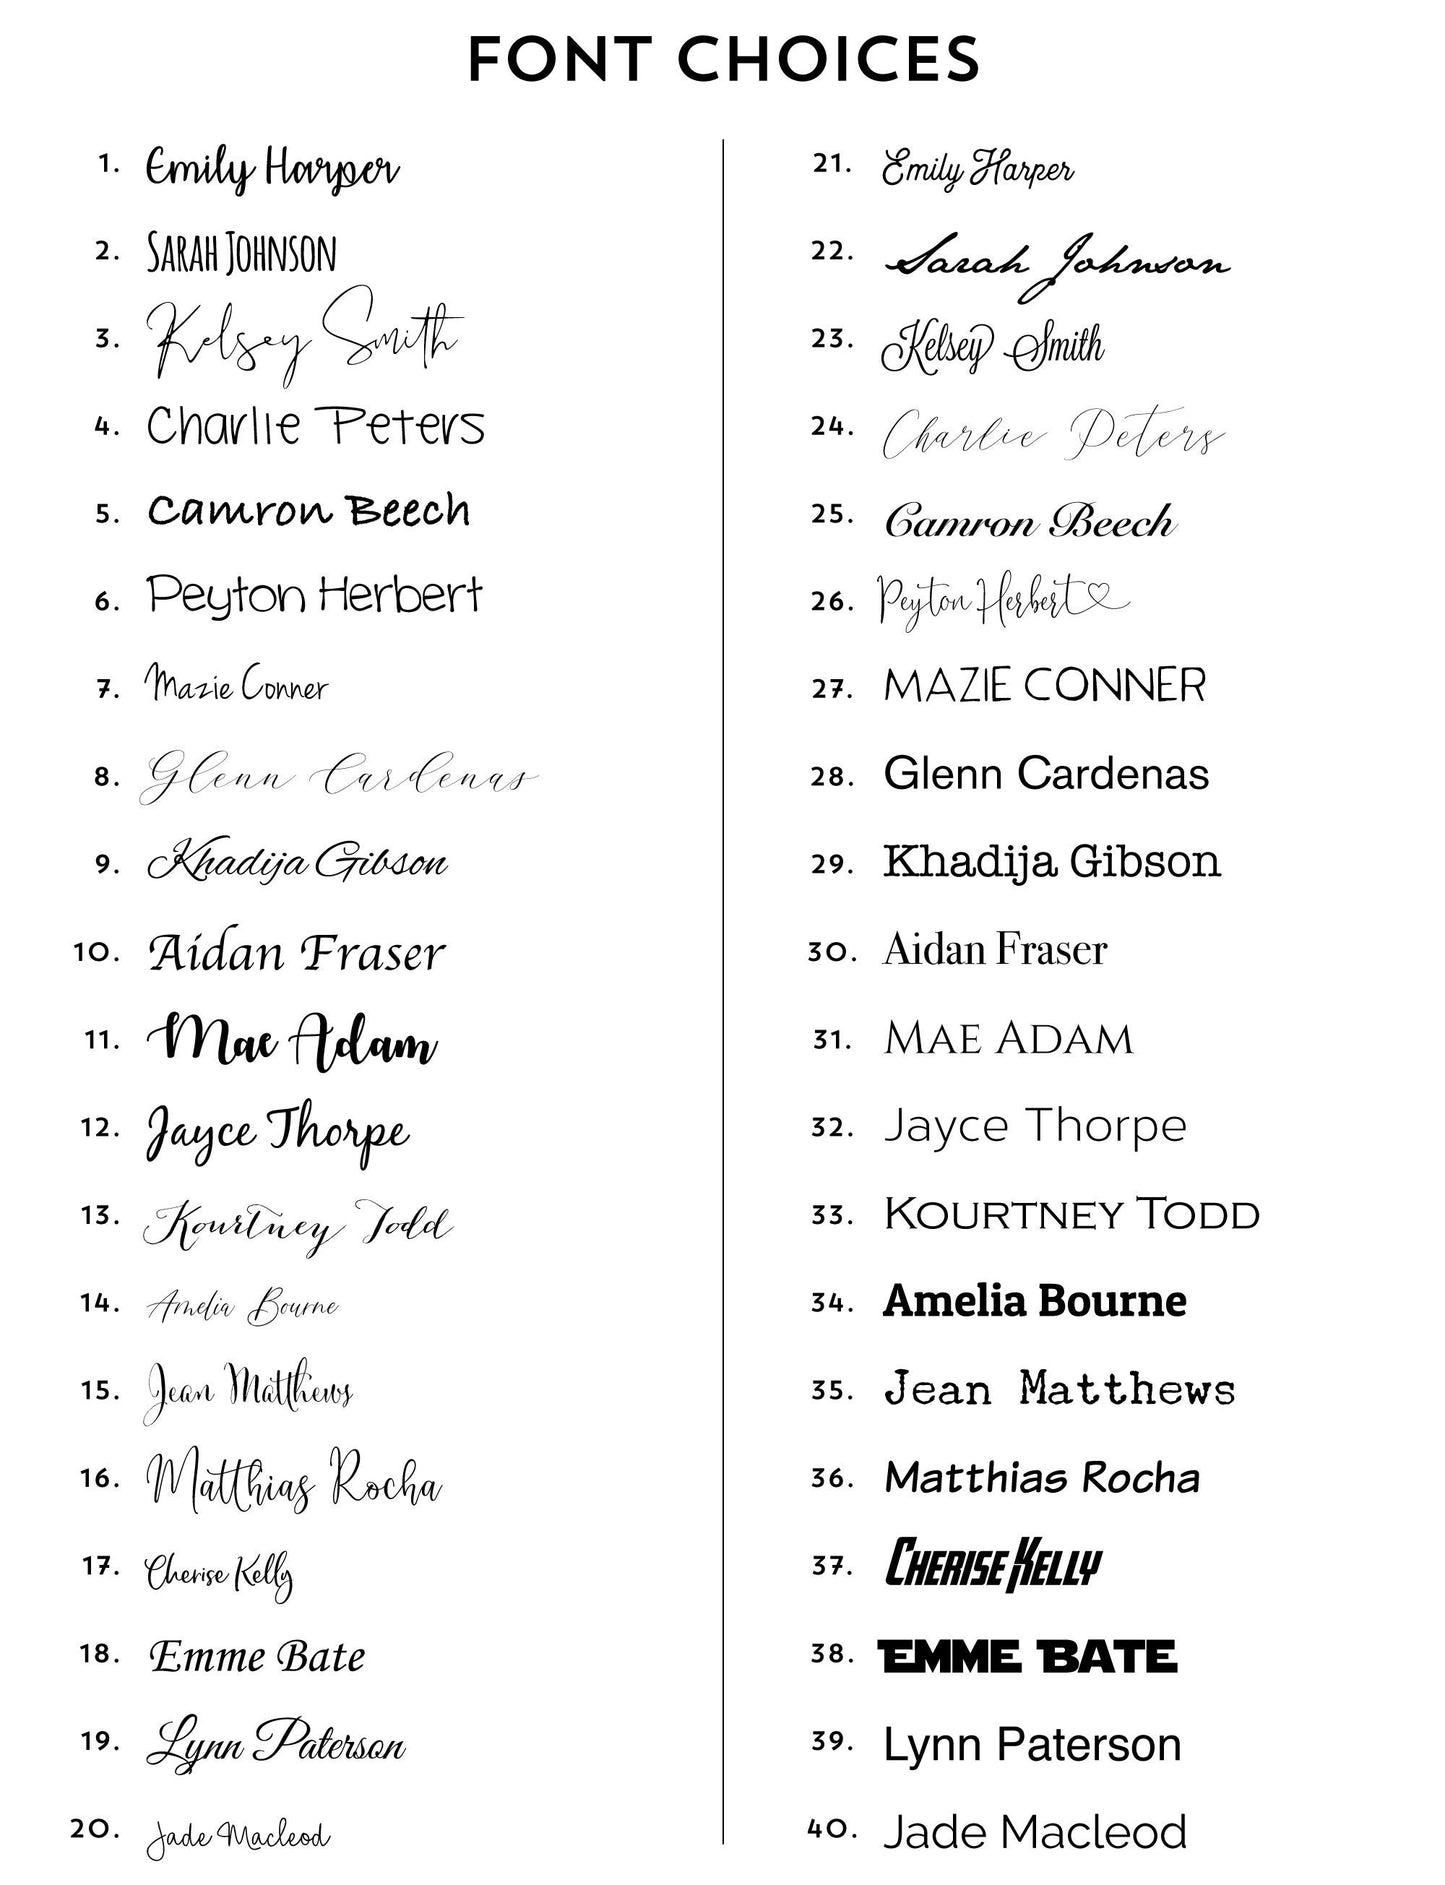 FONT CHOICES
1. Emily Harper
2. SARAH JOHNSON
3. Kelsey Smith
4. Charlie Peters
5. Camron Beech
6. Peyton Herbert
7. Mazie Conner
8. Glenn Cardenas
9. Khadija Gibson
10. Aidan Fraser
11. Mae Adam
12. Jayce Thorpe
13. Kourtney Todd
14. Amelia Bourne
15. Jean Matthews
16. Matthias Rocha
17. Cherise Kelly
18. Emme Bate
19. Lynn Paterson
20. Jade Macleod
21. Emily Harper
22. Sarah Johnson
23. Kelsey Smith
24. Charlie Peters
25. Camron Beech
26. Peyton Herbert♡
27. MAZIE CONNER
28. Glenn Cardenas
29. Khadija Gibson
30. Aidan Fraser
31. MAE ADAM
32. Jayce Thorpe
33. KOURTNEY TODD
34. Amelia Bourne
35. Jean Matthews
36. Matthias Rocha
37. CHERISE KELLY
38. EMME BATE
39. Lynn Paterson
40. Jade Macleod